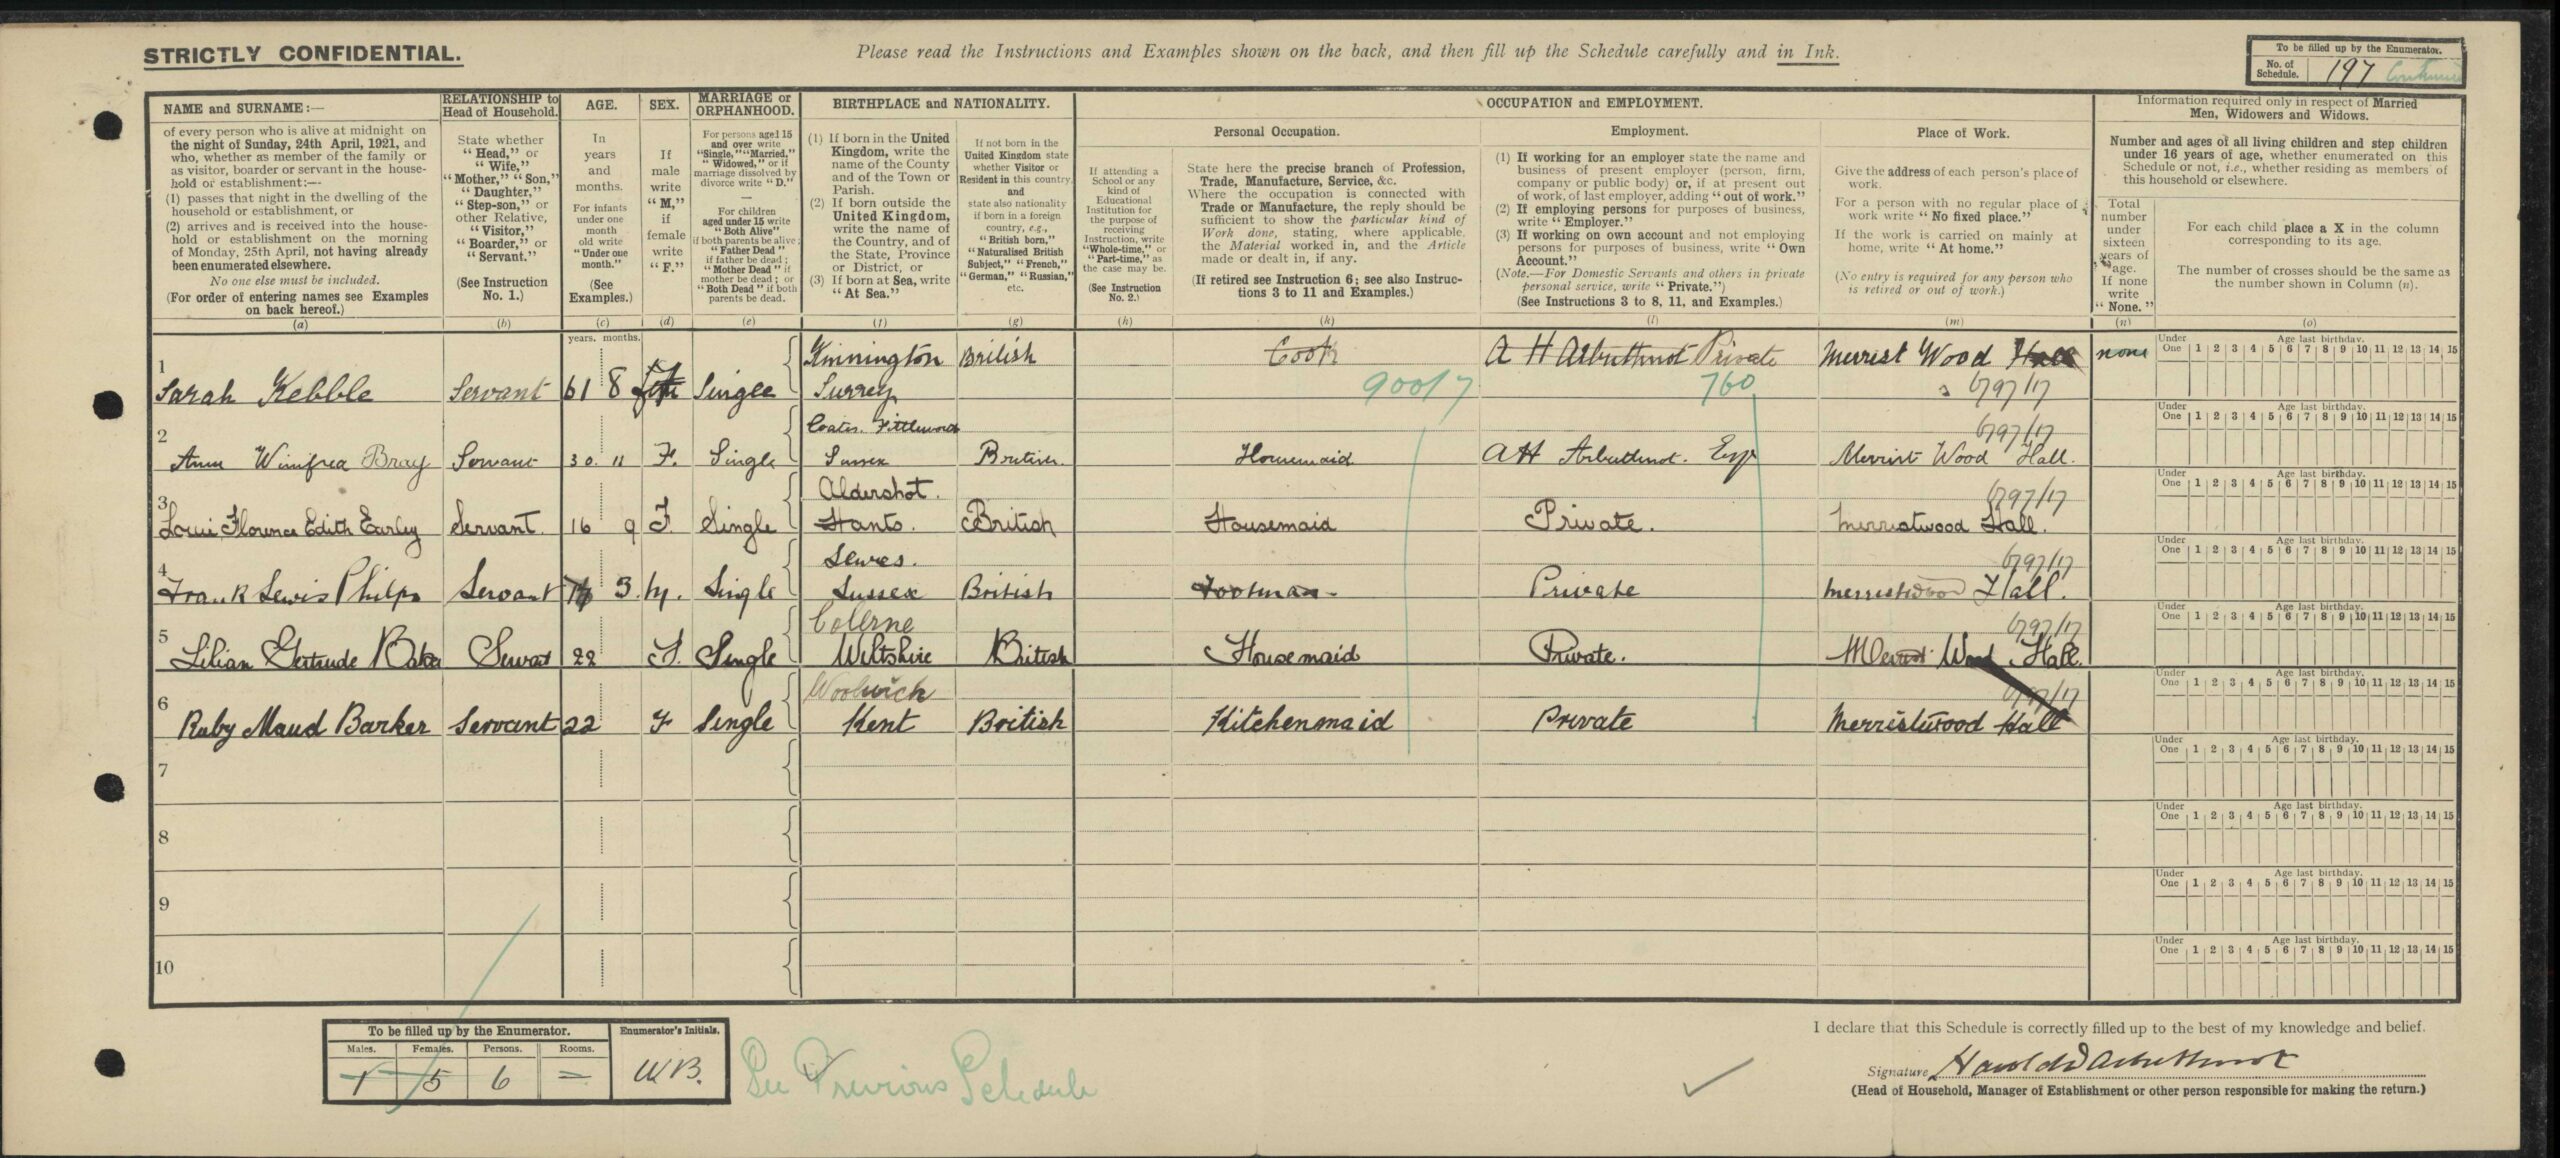 STRICTLY CONFIDENTIAL.
Please read the Instructions and Examples shown on the back, and then fill up the Schedule carefully and in Ink.
To be filled up by the Enumerator.
No. of Schedule. 197
NAME and SURNAME:—
of every person who is alive at midnight on
the night of Sunday, 24th April, 1921, and
who, whether as member of the family or
as visitor, boarder or servant in the house-
hold or establishment:—
(1) passes that night in the dwelling of the
household or establishment, or
(2) arrives and is received into the house-
hold or establishment on the morning
of Monday, 25th April, not having already
been enumerated elsewhere.
No one else must be included.
(For order of entering names see Examples
on back hereof.)
(a)
RELATIONSHIP to
Head of Household.
State whether
"Head," or
"Wife,"
"Mother," "Son,"
"Daughter,"
"Step-son," or
other Relative,
"Visitor,"
"Boarder," or
"Servant."
(See Instruction
No. 1.)
(b)
AGE.
In
years
and
months.
For infants
under one
month
old write
"Under one
month."
(See
Examples.)
(c)
SEX.
If
male
write
"M,"
if
female
write
"F."
(d)
MARRIAGE or
ORPHANHOOD.
For persons aged 15
and over write
"Single," "Married,"
"Widowed," or if
marriage dissolved by
divorce write "D."
—
For children
aged under 15 write
"Both Alive"
if both parents be alive;
"Father Dead"
if father be dead;
"Mother Dead" if
mother be dead; or
"Both Dead" if both
parents be dead.
(e)
BIRTHPLACE and NATIONALITY.
(1) If born in the United
Kingdom, write the
name of the County
and of the Town or
Parish.
(2) If born outside the
United Kingdom,
write the name of
the Country, and of
the State, Province
or District, or
(3) If born at Sea, write
"At Sea."
(f)
If not born in the
United Kingdom state
whether Visitor or
Resident in this country,
and
state also nationality
if born in a foreign
country, e.g.,
"British born,"
"Naturalised British
Subject," "French,"
"German," "Russian,"
etc.
(g)
If attending a
School or any
kind of
Educational
Institution for
the purpose of
receiving
Instruction, write
"Whole-time," or
"Part-time," as
the case may be.
(See Instruction
No. 2.)
(h)
OCCUPATION and EMPLOYMENT.
Personal Occupation.
State here the precise branch of Profession,
Trade, Manufacture, Service, &c.
Where the occupation is connected with
Trade or Manufacture, the reply should be
sufficient to show the particular kind of
Work done, stating, where applicable,
the Material worked in, and the Article
made or dealt in, if any.
(If retired see Instruction 6; see also Instruc-
tions 3 to 11 and Examples.)
(k)
Employment.
(1) If working for an employer state the name and
business of present employer (person, firm,
company or public body) or, if at present out
of work, of last employer, adding "out of work."
(2) If employing persons for purposes of business,
write "Employer."
(3) If working on own account and not employing
persons for purposes of business, write "Own
Account."
(Note.—For Domestic Servants and others in private
personal service, write "Private.")
(See Instructions 3 to 8, 11, and Examples.)
(l)
Place of Work.
Give the address of each person's place of
work.
For a person with no regular place of
work write "No fixed place."
If the work is carried on mainly at
home, write "At home."
(No entry is required for any person who
is retired or out of work.)
(m)
Information required only in respect of Married
Men, Widowers and Widows.
Number and ages of all living children and step children
under 16 years of age, whether enumerated on this
Schedule or not, i.e., whether residing as members of
this household or elsewhere.
Total
number
under
sixteen
years of
age.
If none
write
"None."
(n)
For each child place a X in the column
corresponding to its age.
The number of crosses should be the same as
the number shown in Column (n).
(o)
years. months.
Under One Age last birthday. 1 2 3 4 5 6 7 8 9 10 11 12 13 14 15
1 Sarah Kebble Servant 61 8 Single Kinnington Surrey British Cook A H Arbuthnot Private Merrist Wood Hall none
900/7 760 6797/17
Under One Age last birthday. 1 2 3 4 5 6 7 8 9 10 11 12 13 14 15
2 Winifred Bray Servant 30. 11 F. Single Coates. Fittleworth Sussex British. Housemaid AH Arbuthnot. Esq Merrist Wood Hall.
6797/17
Under One Age last birthday. 1 2 3 4 5 6 7 8 9 10 11 12 13 14 15
3 Florence Edith Earley Servant. 16 9 F. Single Aldershot. Hants. British Housemaid Private. Merristwood Hall.
6797/17
Under One Age last birthday. 1 2 3 4 5 6 7 8 9 10 11 12 13 14 15
4 Frank Lewis Philps Servant 3. M. Single Lewes. Sussex British Footman Private Merristwood Hall.
6797/17
Under One Age last birthday. 1 2 3 4 5 6 7 8 9 10 11 12 13 14 15
5 Lilian Gertrude Baker Servant 22 F. Single Colerne Wiltshire British Housemaid Private. Merrist Wood Hall.
6797/17
Under One Age last birthday. 1 2 3 4 5 6 7 8 9 10 11 12 13 14 15
6 Ruby Maud Barker Servant 22 F Single Woolwich Kent British Kitchenmaid Private Merristwood Hall
6797/17
Under One Age last birthday. 1 2 3 4 5 6 7 8 9 10 11 12 13 14 15
7
Under One Age last birthday. 1 2 3 4 5 6 7 8 9 10 11 12 13 14 15
8
Under One Age last birthday. 1 2 3 4 5 6 7 8 9 10 11 12 13 14 15
9
Under One Age last birthday. 1 2 3 4 5 6 7 8 9 10 11 12 13 14 15
10
To be filled up by the Enumerator.
Males. Females. Persons. Rooms.
1 5 6 =
Enumerator's Initials.
W.B.
See Previous Schedule
I declare that this Schedule is correctly filled up to the best of my knowledge and belief.
Signature Harold D Arbuthnot
(Head of Household, Manager of Establishment or other person responsible for making the return.)